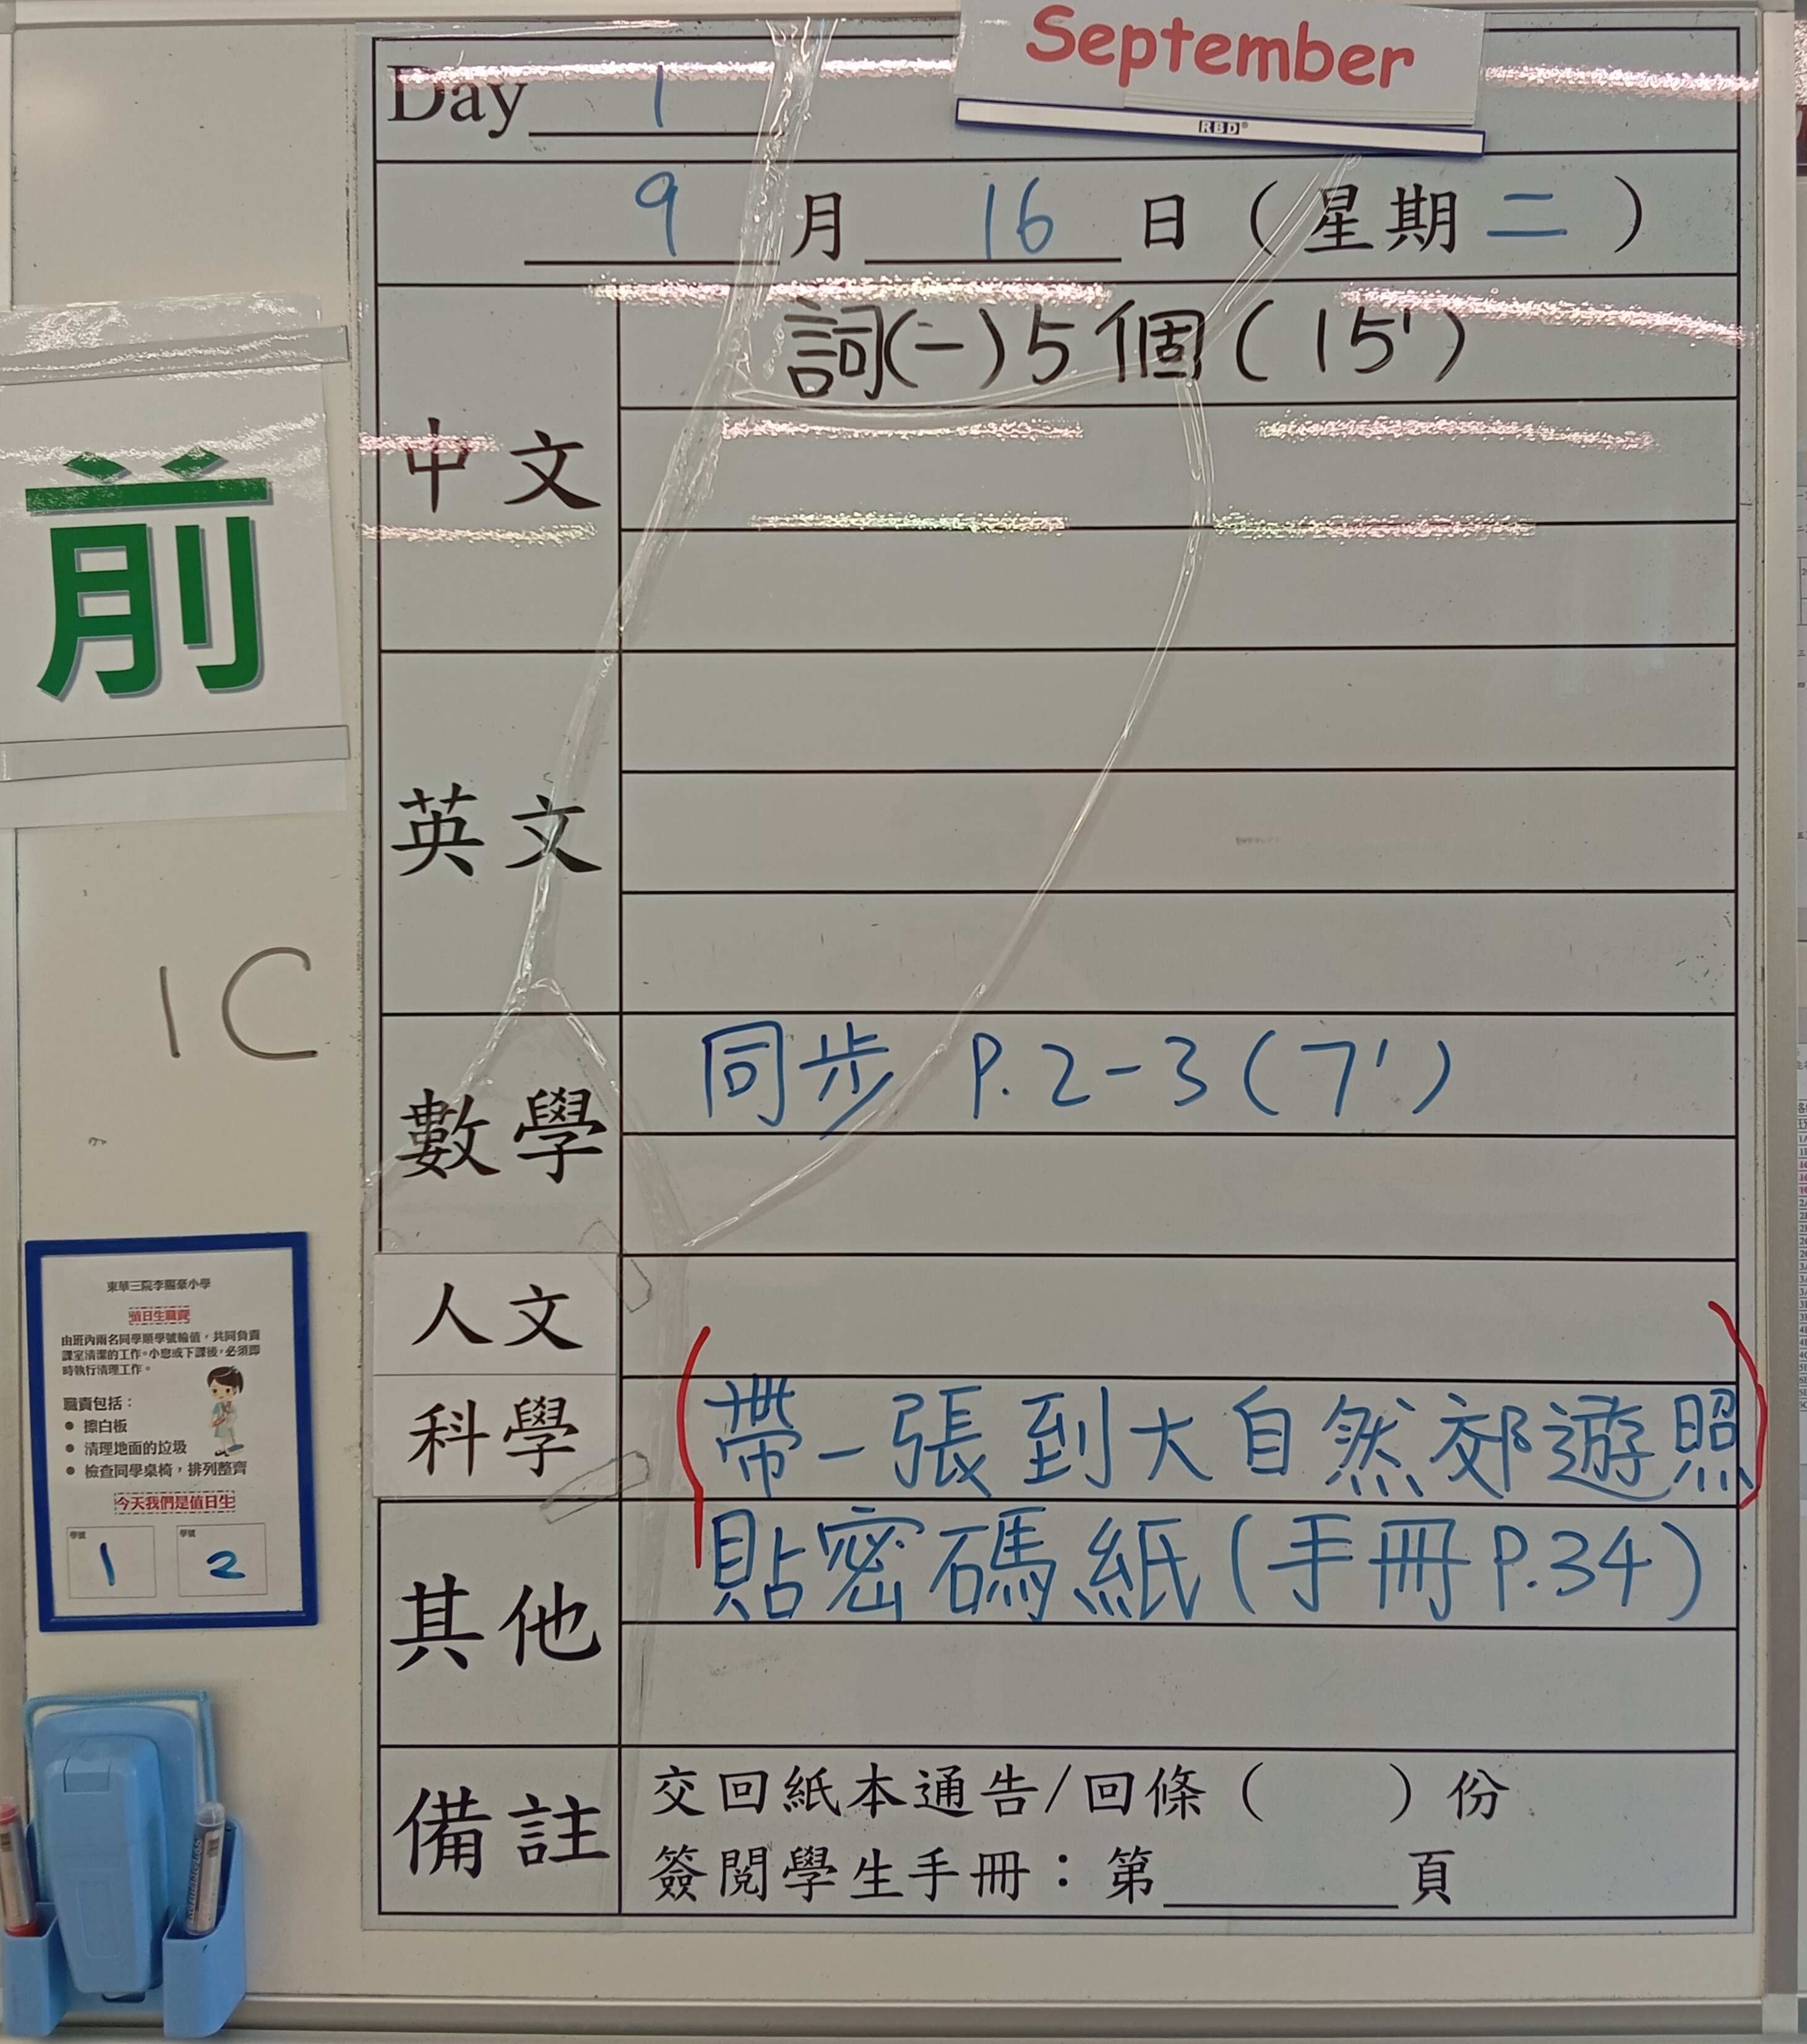 September
RBD
Day 1
9 月 16 日 (星期二)
中文
詞(一)5個(15')
英文
數學
同步 P.2-3(7')
人文
科學
(帶一張到大自然郊遊照)
其他
貼密碼紙(手冊P.34)
備註
交回紙本通告/回條( )份
簽閱學生手冊:第 頁
前
1C
東華三院李賜豪小學
值日生職責
由班內兩名同學順學號輪值,共同負責
課室清潔的工作。小息或下課後,必須即
時執行清理工作。
職責包括:
● 擦白板
● 清理地面的垃圾
● 檢查同學桌椅,排列整齊
今天我們是值日生
學號
1
學號
2